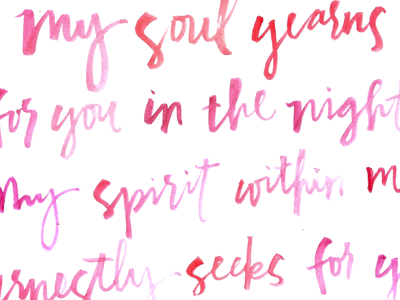 my soul yearns
for you in the night
my spirit within m
rnestly seeks for y